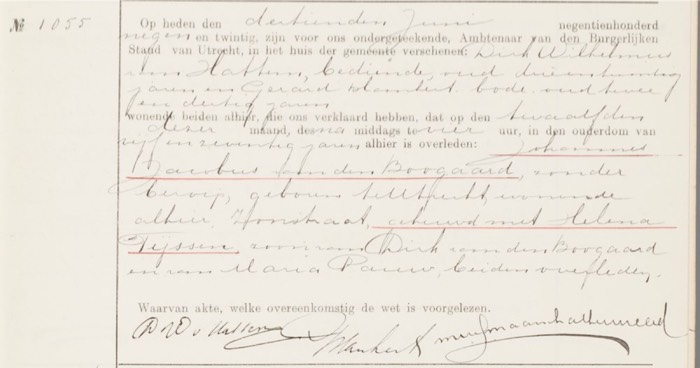 № 1055
Op heden den dertienden Juni negentienhonderd
negen en twintig, zijn voor ons ondergeteekende, Ambtenaar van den Burgerlijken
Stand van Utrecht, in het huis der gemeente verschenen: Dirk Wilhelmus
van Hattem, bediende, oud drieentwintig
jaren en Gerard Mankert, bode, oud twee
en dertig jaren
wonende beiden alhier, die ons verklaard hebben, dat op den twaalfden
dezer maand, des na middags te vier uur, in den ouderdom van
vijf en zeventig jaren alhier is overleden: Johannes
Jacobus van den Boogaard, zonder
beroep, geboren te Utrecht, wonende
alhier, gehuwd met Helena
Tijssen, zoon van Dirk van den Boogaard
en van Maria Pauw, beiden overleden.
Waarvan akte, welke overeenkomstig de wet is voorgelezen.